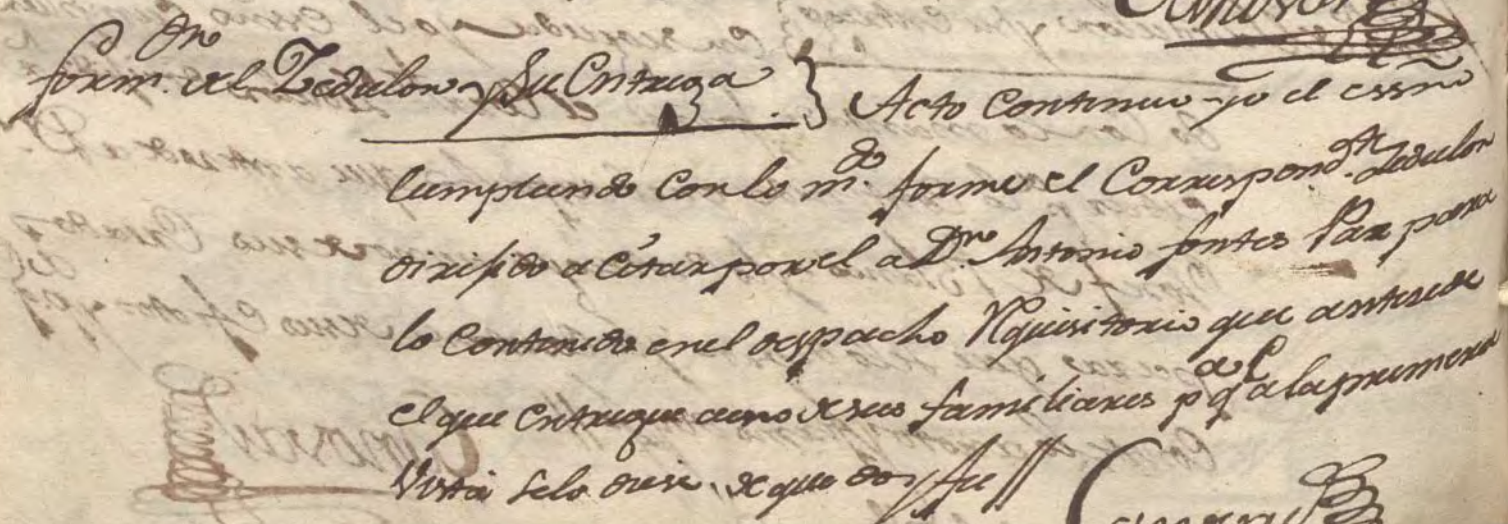 form.on del Zedulon y su Entrega } Acto continuo yo el essno
Cumpliendo con lo m.do forme el Correspond.te Zedulon
dirijido a Citar por el a Dn. Antonio fontes Paz para
lo Contenido en el despacho Requisitorio que antesede
el que entregue a uno de sus familiares p.a q.e a la primera
Vista se lo diese, de que doy fee//